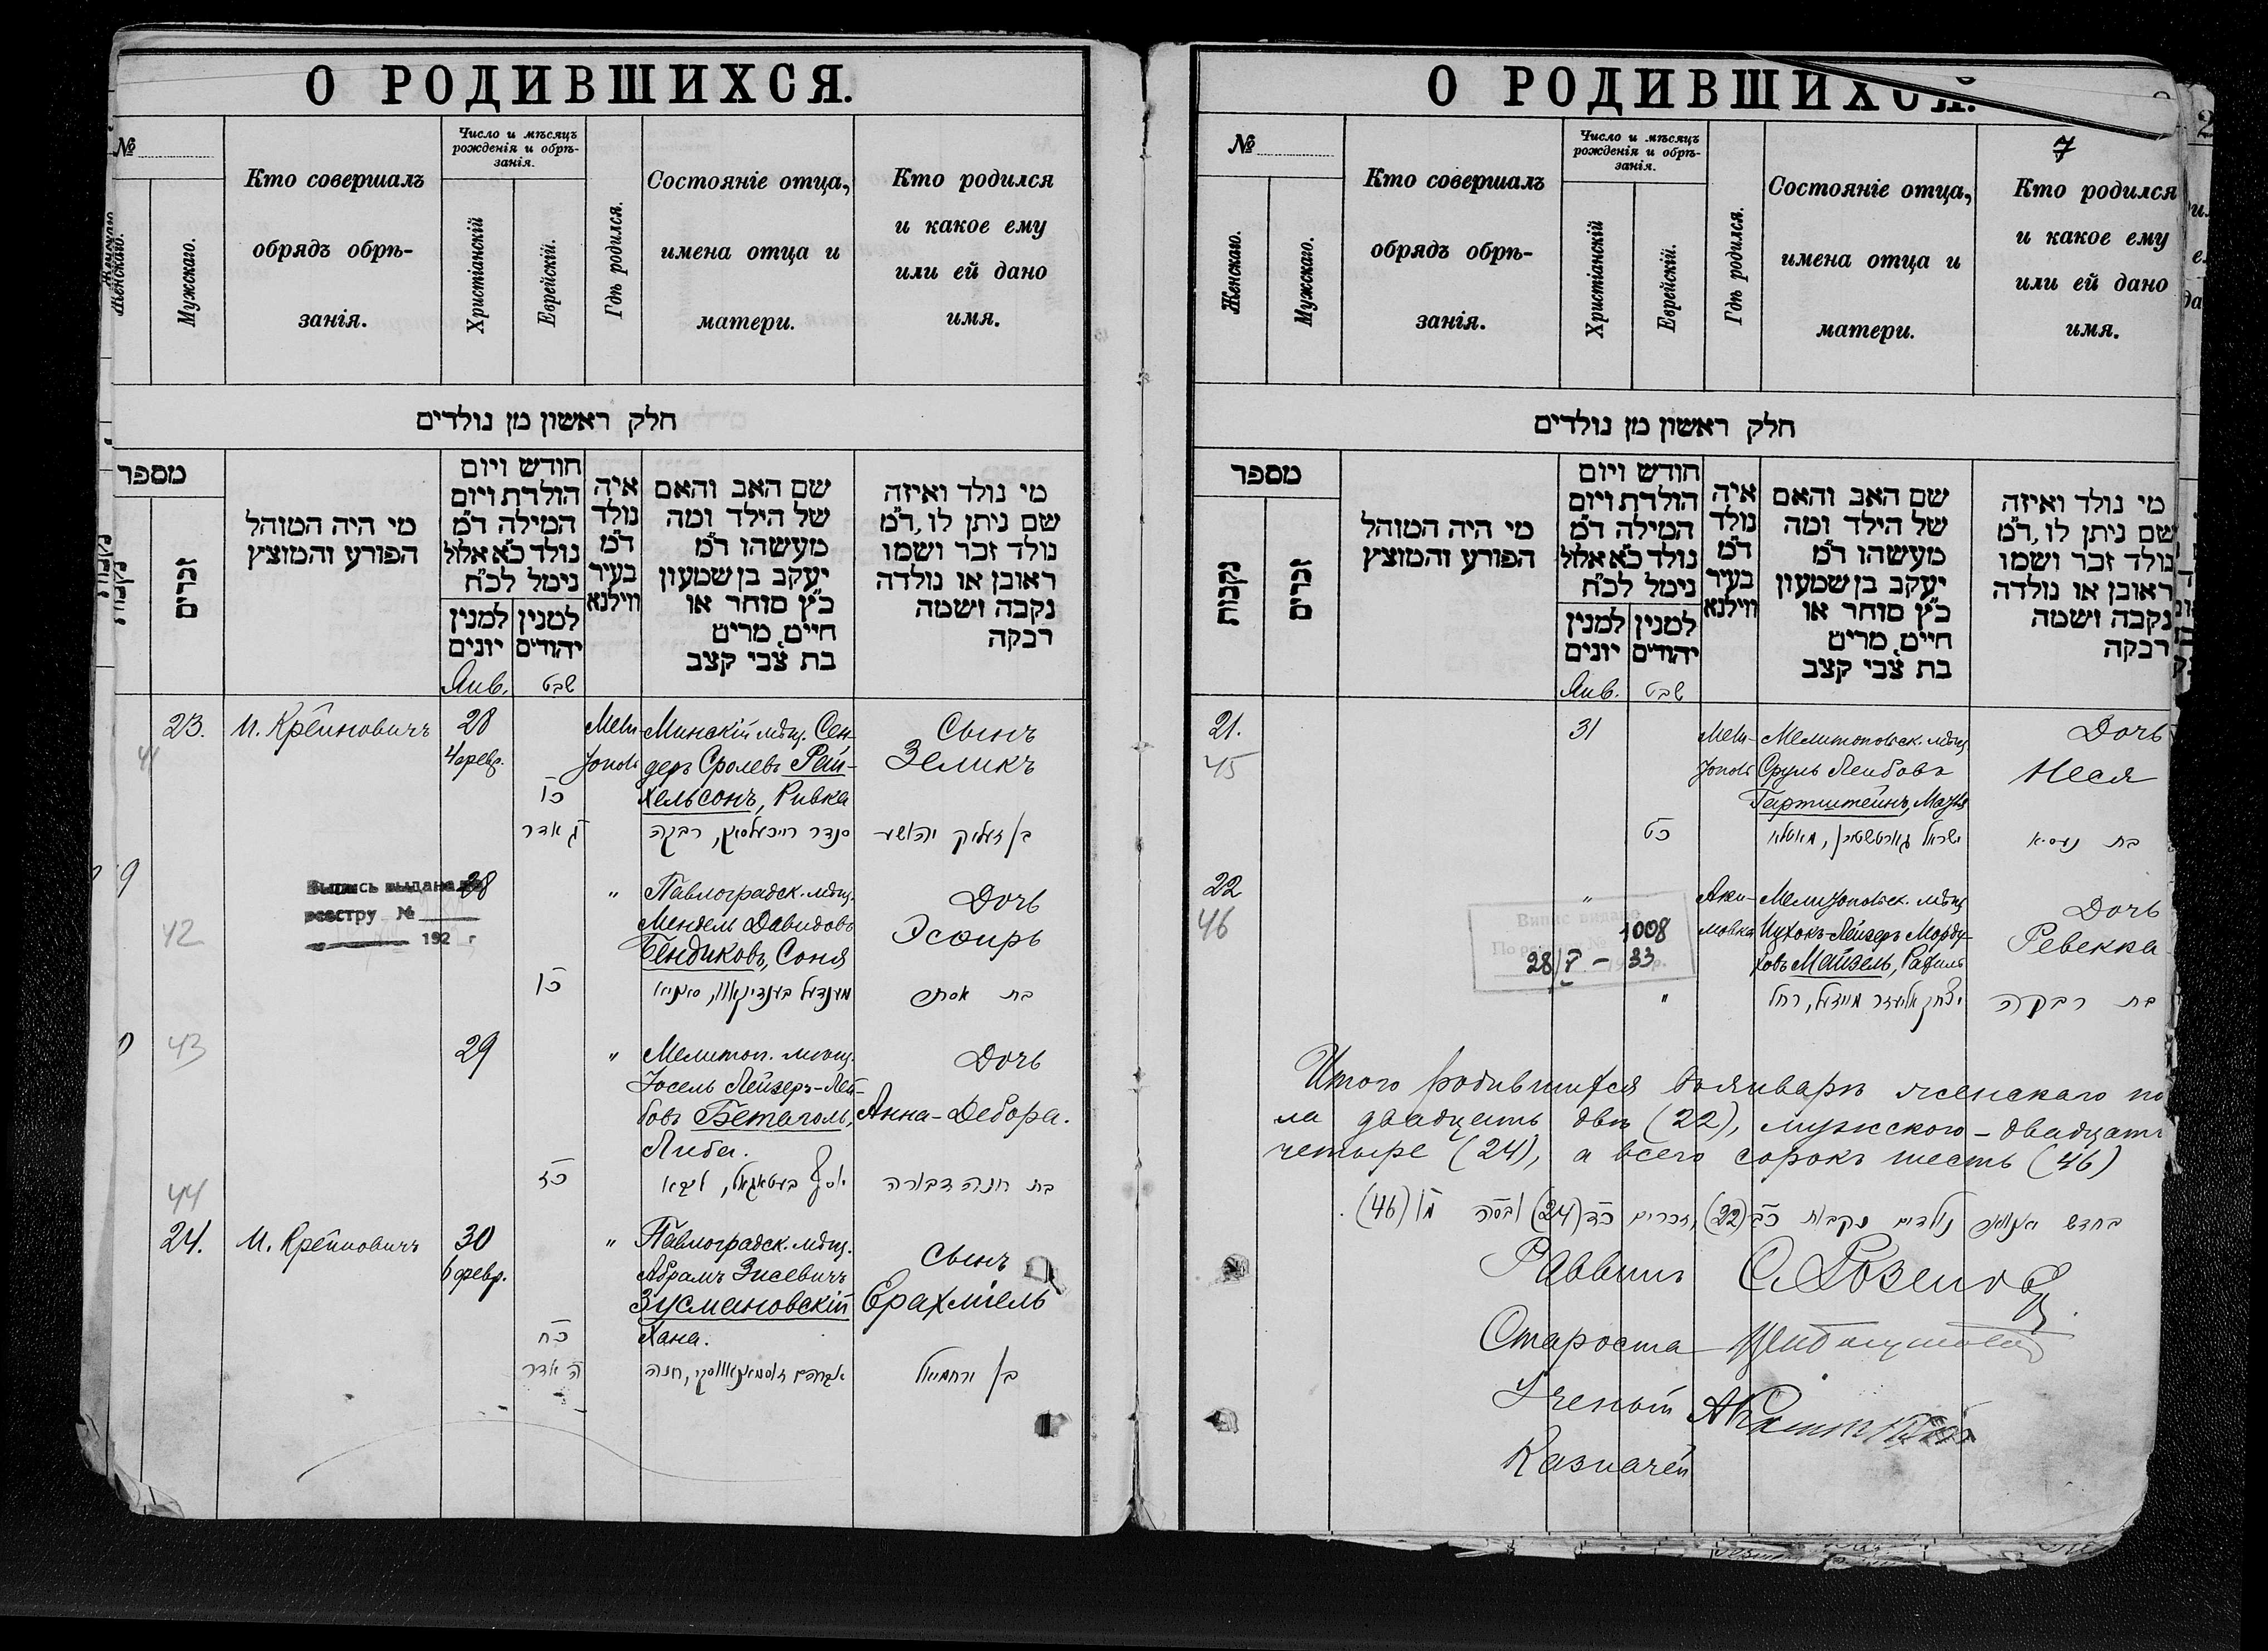 О РОДИВШИХСЯ.
№
Женскаго.
Мужскаго.
Кто совершалъ
обрядъ обрѣ-
занія.
Число и мѣсяцъ
рожденія и обрѣ-
занія.
Христіанскій
Еврейскій.
Гдѣ родился.
Состояніе отца,
имена отца и
матери.
Кто родился
и какое ему
или ей дано
имя.
חלק ראשון מן נולדים
מספר
נקבות
זכרים
מי היה המוהל
הפורע והמוצץ
חודש ויום
הולדת ויום
המילה ד״מ
נולד כ״א אלול
נימל לכ״ח
למנין
יונים
למנין
יהודים
איה
נולד
ד״מ
בעיר
ווילנא
שם האב והאם
של הילד ומה
מעשהו ד״מ
יעקב בן שמעון
כ״ץ סוחר או
חיים, מרים
בת צבי קצב
מי נולד ואיזה
שם ניתן לו, ד״מ
נולד זכר ושמו
ראובן או נולדה
נקבה ושמה
רבקה
Янв.
שבט
23.
41
И. Крейновичъ
28
4 февр.
כו
ג אדר
Мели-
тополь
Минскій мѣщ. Сен-
деръ Сролевъ Рай-
хельсонъ, Ривка
סנדר רייכעלסאן, רבקה
Сынъ
Зеликъ
בן זעליק יהושע
9
42
Выпись выдана по
реестру №
192 г
28
כו
"
Павлоградск. мѣщ.
Мендель Давидовъ
Бендиковъ, Соня
Дочь
Эсѳирь
בת אסתר
43
29
כז
"
Мелитоп. мѣщ.
Іосель Лейзеръ-Лей-
бовъ Бетаголь,
Либа.
Дочь
Анна-Дебора.
בת חנה דבורה
44
24.
И. Крейновичъ
30
6 февр.
כח
ה אדר
"
Павлоградск. мѣщ.
Абрамъ Зисевичъ
Зусмановскій
Хана.
Сынъ
Ерахміель
בן ירחמיאל
О РОДИВШИХСЯ.
7
№
Женскаго.
Мужскаго.
Кто совершалъ
обрядъ обрѣ-
занія.
Число и мѣсяцъ
рожденія и обрѣ-
занія.
Христіанскій
Еврейскій.
Гдѣ родился.
Состояніе отца,
имена отца и
матери.
Кто родился
и какое ему
или ей дано
имя.
חלק ראשון מן נולדים
מספר
נקבות
זכרים
מי היה המוהל
הפורע והמוצץ
חודש ויום
הולדת ויום
המילה ד״מ
נולד כ״א אלול
נימל לכ״ח
למנין
יונים
למנין
יהודים
איה
נולד
ד״מ
בעיר
ווילנא
שם האב והאם
של הילד ומה
מעשהו ד״מ
יעקב בן שמעון
כ״ץ סוחר או
חיים, מרים
בת צבי קצב
מי נולד ואיזה
שם ניתן לו, ד״מ
נולד זכר ושמו
ראובן או נולדה
נקבה ושמה
רבקה
Янв.
שבט
21.
45
31
כט
Мели-
тополь
Мелитопольск. мѣщ.
Сруль Лейбовъ
Гартштейнъ,
Дочь
Неся
בת נעסיא
22
46
"
Випис видано
По реєстр. № 1008
28/V – 33 р.
"
Аки-
мовка
Мелитопольск. мѣщ.
Ицхокъ-Лейзеръ Морду-
ховъ Майзель, Рахиль
יצחק אליעזר מייזעל, רחל
Дочь
Ревекка
בת רבקה
Итого родившихся въ январѣ женскаго по
ла двадцать двѣ (22), мужского – двадцать
четыре (24), а всего сорокъ шесть (46)
בחדש יאנואר נולדים נקבות כב (22), זכרים כד (24) ובסה מו (46).
Раввинъ
Староста
Ученый
Казначей